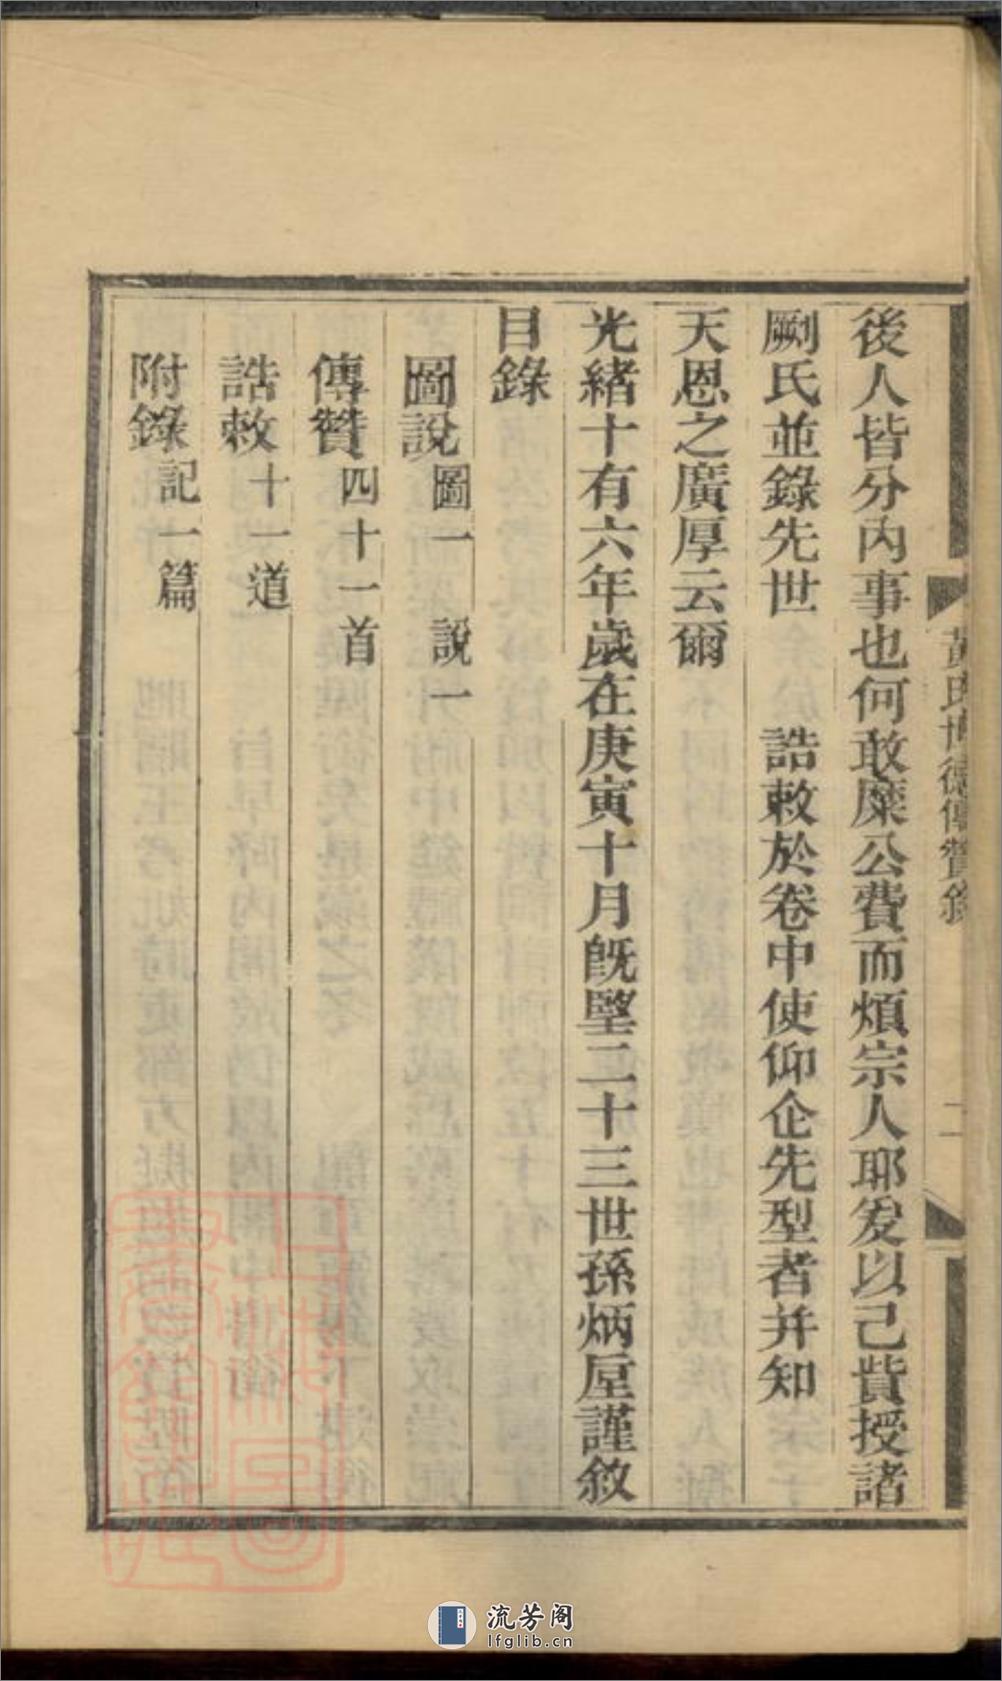 後人皆分內事也何敢糜公費而煩宗人耶爰以己貲授諸
劂氏並錄先世　誥敕於卷中使仰企先型者并知
天恩之廣厚云爾
光緒十有六年歲在庚寅十月旣望二十三世孫炳垕謹敘
目錄
圖說 圖一 說一
傳贊 四十一首
誥敕 十一道
附錄 記一篇
黃氏世德傳贊錄
二
上海圖書館藏
流芳阁
lfglib.cn